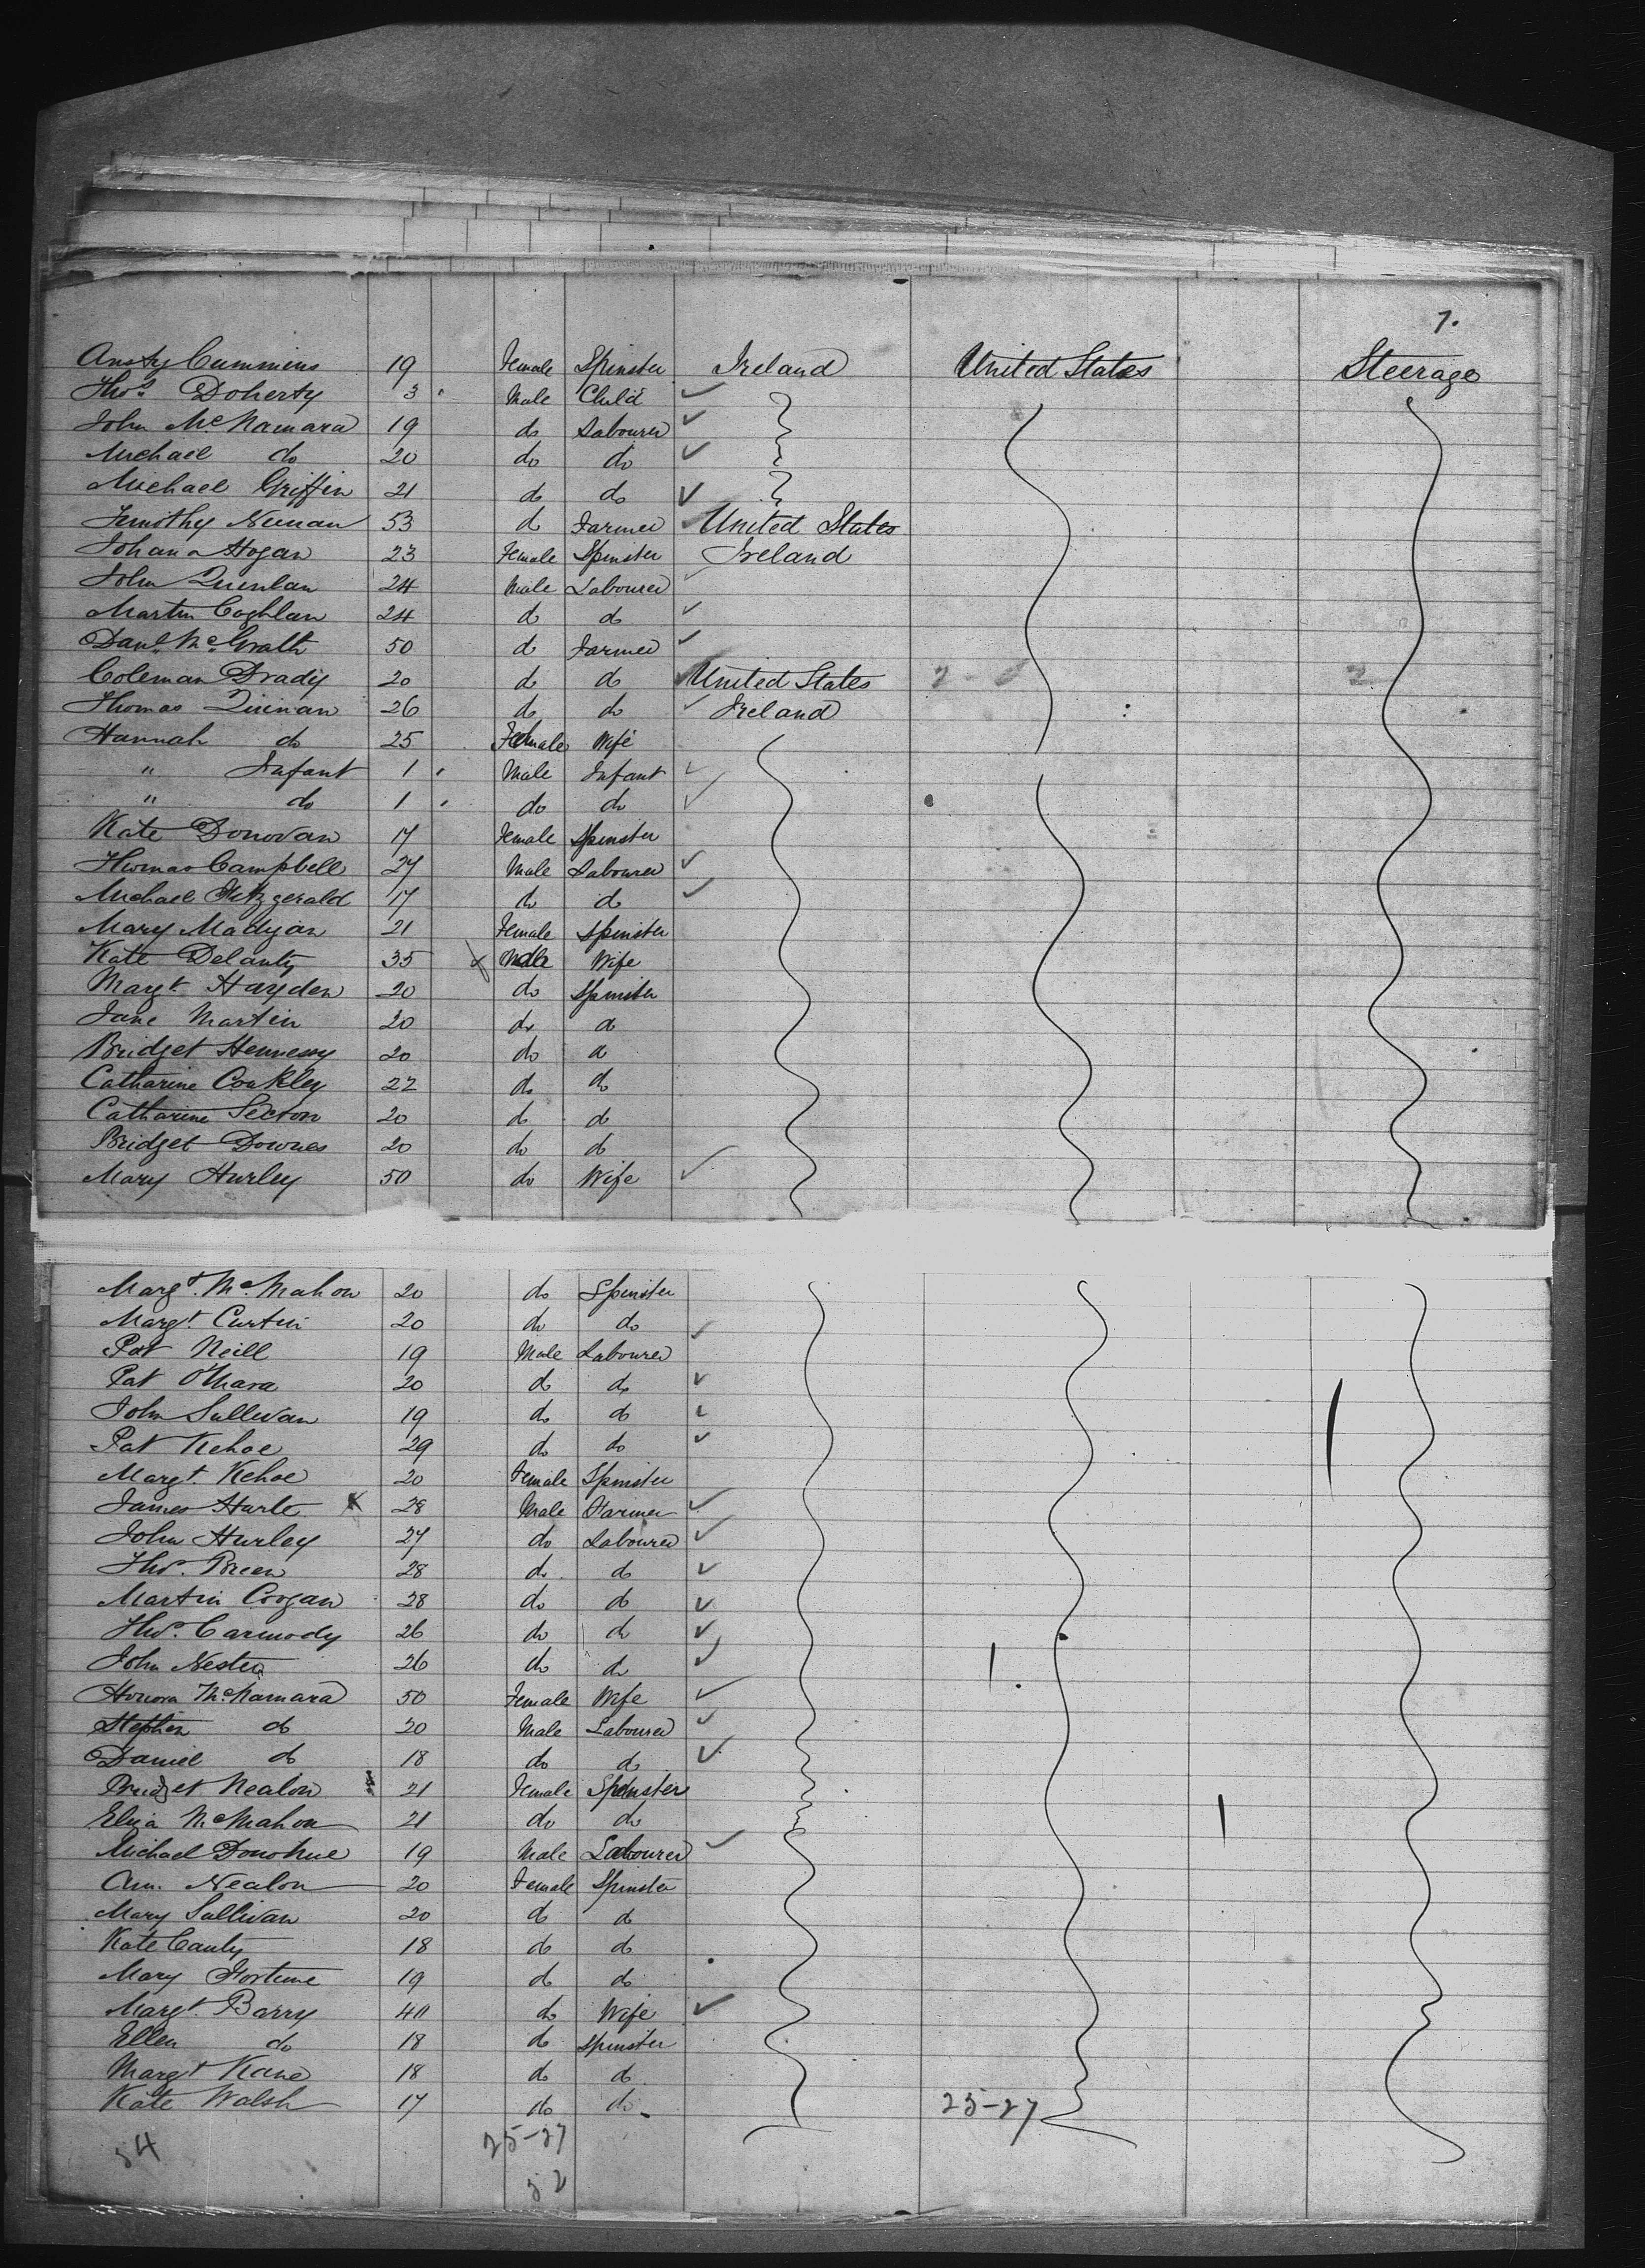 7.
Ansty Cummins 19 Female Spinster Ireland United States Steerage
Thos. Doherty 3 Male Child
John McNamara 19 do Labourer
Michael do 20 do do
Michael Griffin 21 do do
Timothy Neenan 53 do Farmer United States
Johana Hogan 23 Female Spinster Ireland
John Quinlan 24 Male Labourer
Martin Coghlan 24 do do
Danl. McGrath 50 do Farmer
Coleman Drady 20 do do United States
Thomas Quinan 26 do do Ireland
Hannah do 25 Female Wife
" Infant 1 Male Infant
" do 1 do do
Kate Donovan 17 Female Spinster
Thomas Campbell 27 Male Labourer
Michael Fitzgerald 17 do do
Mary Madigan 21 Female Spinster
Kate Delanty 35 Male Wife
Margt. Hayden 20 do Spinster
Jane Martin 20 do do
Bridget Hennessy 20 do do
Catharine Coakley 22 do do
Catharine Sexton 20 do do
Bridget Downes 20 do do
Mary Hurley 50 do Wife
Margt. McMahon 20 do Spinster
Margt. Curtin 20 do do
Pat Neill 19 Male Labourer
Pat O'Mara 20 do do
John Sullivan 19 do do
Pat Kehoe 29 do do
Margt. Kehoe 20 Female Spinster
James Harte 28 Male Farmer
John Hurley 27 do Labourer
Thos. Breen 28 do do
Martin Coogan 28 do do
Thos. Carmody 26 do do
John Nestor 26 do do
Honora McNamara 50 Female Wife
Stephen do 20 Male Labourer
Daniel do 18 do do
Bridget Nealon 21 Female Spinster
Eliza McMahon 21 do do
Michael Donohue 19 Male Labourer
Ann. Nealon 20 Female Spinster
Mary Sullivan 20 do do
Kate Canty 18 do do
Mary Fortune 19 do do
Margt. Barry 40 do Wife
Ellen do 18 do Spinster
Margt Kane 18 do do
Kate Walsh 17 do do 25-27
54 25-27
52